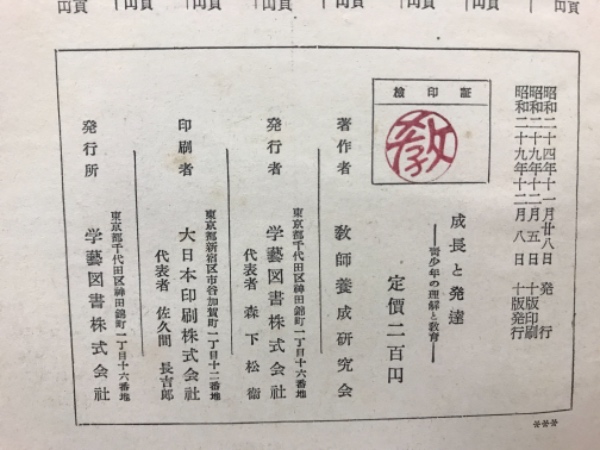 昭和二十四年十一月廿八日 発行
昭和二十九年十二月五日 十版印刷
昭和二十九年十二月八日 十版発行
検印証
教
成長と発達
―青少年の理解と教育―
定價二百円
著作者 教師養成研究会
東京都千代田区神田錦町一丁目十六番地
発行者 学藝図書株式会社
代表者 森下松衞
東京都新宿区市谷加賀町一丁目十二番地
印刷者 大日本印刷株式会社
代表者 佐久間長吉郎
東京都千代田区神田錦町一丁目十六番地
発行所 学藝図書株式会社
***